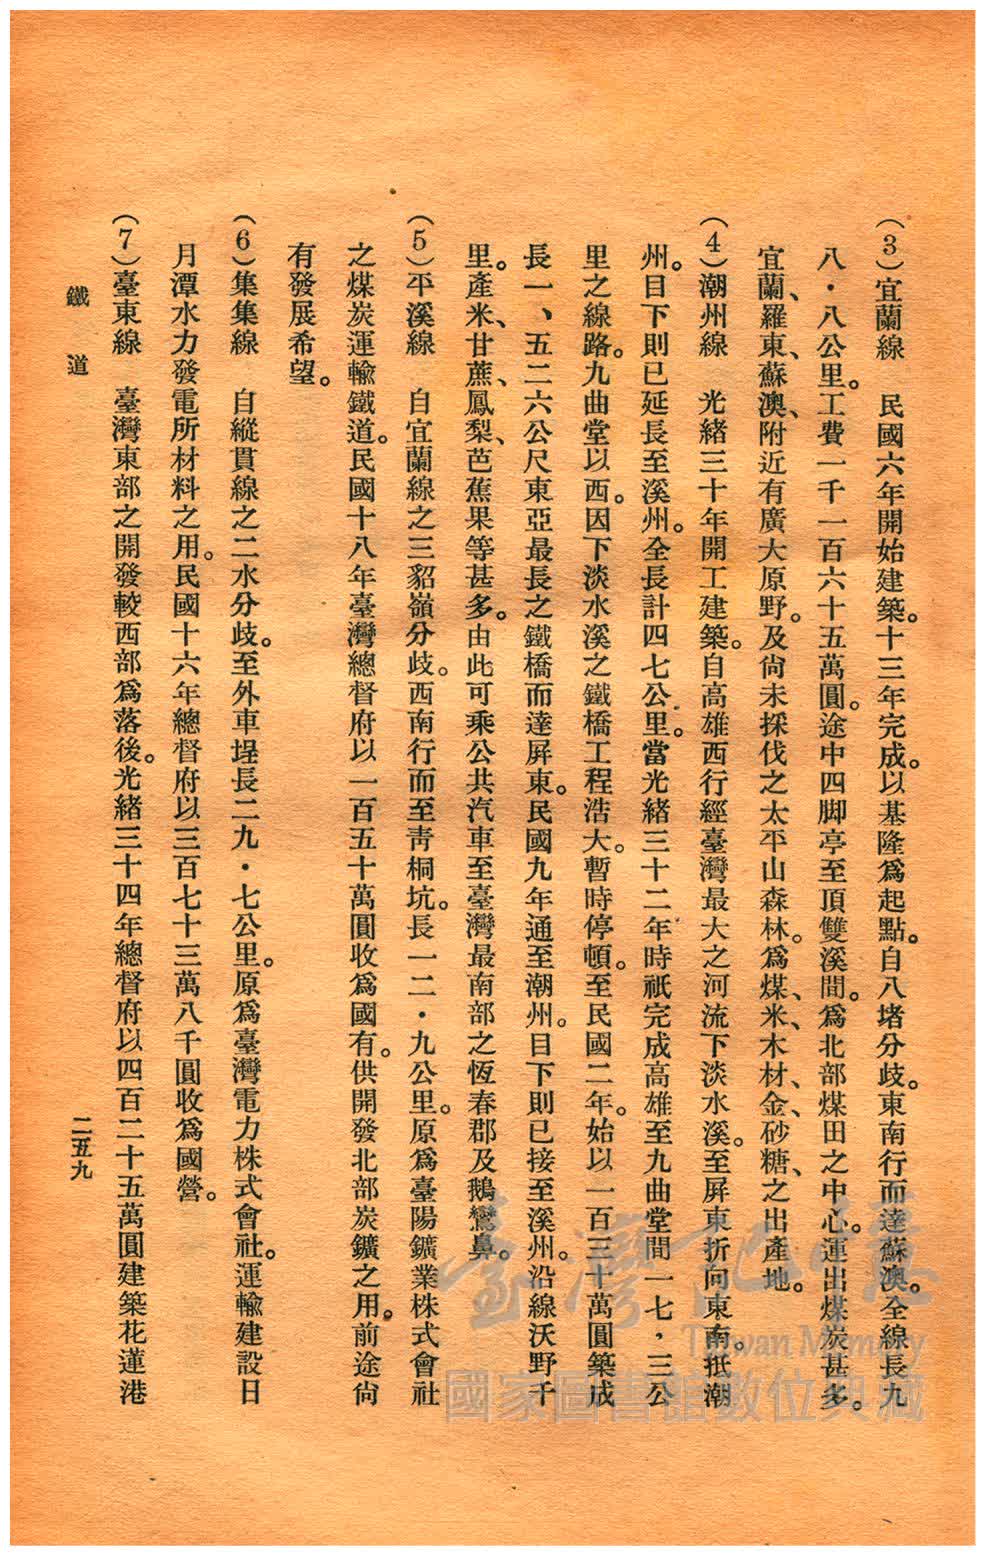 （3）宜蘭線　民國六年開始建築。十三年完成。以基隆爲起點。自八堵分歧。東南行而達蘇澳。全線長九
八・八公里。工費一千一百六十五萬圓。途中四脚亭至頂雙溪間。爲北部煤田之中心。運出煤炭甚多。
宜蘭、羅東、蘇澳、附近有廣大原野。及尙未採伐之太平山森林。爲煤、米、木材、金、砂糖、之出產地。
（4）潮州線　光緒三十年開工建築。自高雄西行經臺灣最大之河流下淡水溪。至屏東折向東南。抵潮
州。目下則已延長至溪州。全長計四七公里。當光緒三十二年時祇完成高雄至九曲堂間一七，三公
里之線路。九曲堂以西。因下淡水溪之鐵橋工程浩大。暫時停頓。至民國二年。始以一百三十萬圓築成
長一、五二六公尺東亞最長之鐵橋而達屏東。民國九年通至潮州。目下則已接至溪州。沿線沃野千
里。產米、甘蔗、鳳梨、芭蕉果等甚多。由此可乘公共汽車至臺灣最南部之恆春郡及鵝鸞鼻。
（5）平溪線　自宜蘭線之三貂嶺分歧。西南行而至靑桐坑。長一二・九公里。原爲臺陽鑛業株式會社
之煤炭運輸鐵道。民國十八年臺灣總督府以一百五十萬圓收爲國有。供開發北部炭鑛之用。前途尙
有發展希望。
（6）集集線　自縱貫線之二水分歧。至外車埕長二九・七公里。原爲臺灣電力株式會社。運輸建設日
月潭水力發電所材料之用。民國十六年總督府以三百七十三萬八千圓收爲國營。
（7）臺東線　臺灣東部之開發較西部爲落後。光緒三十四年總督府以四百二十五萬圓建築花蓮港
鐵　道　二五九
臺灣記憶
Taiwan Memory
國家圖書館數位典藏